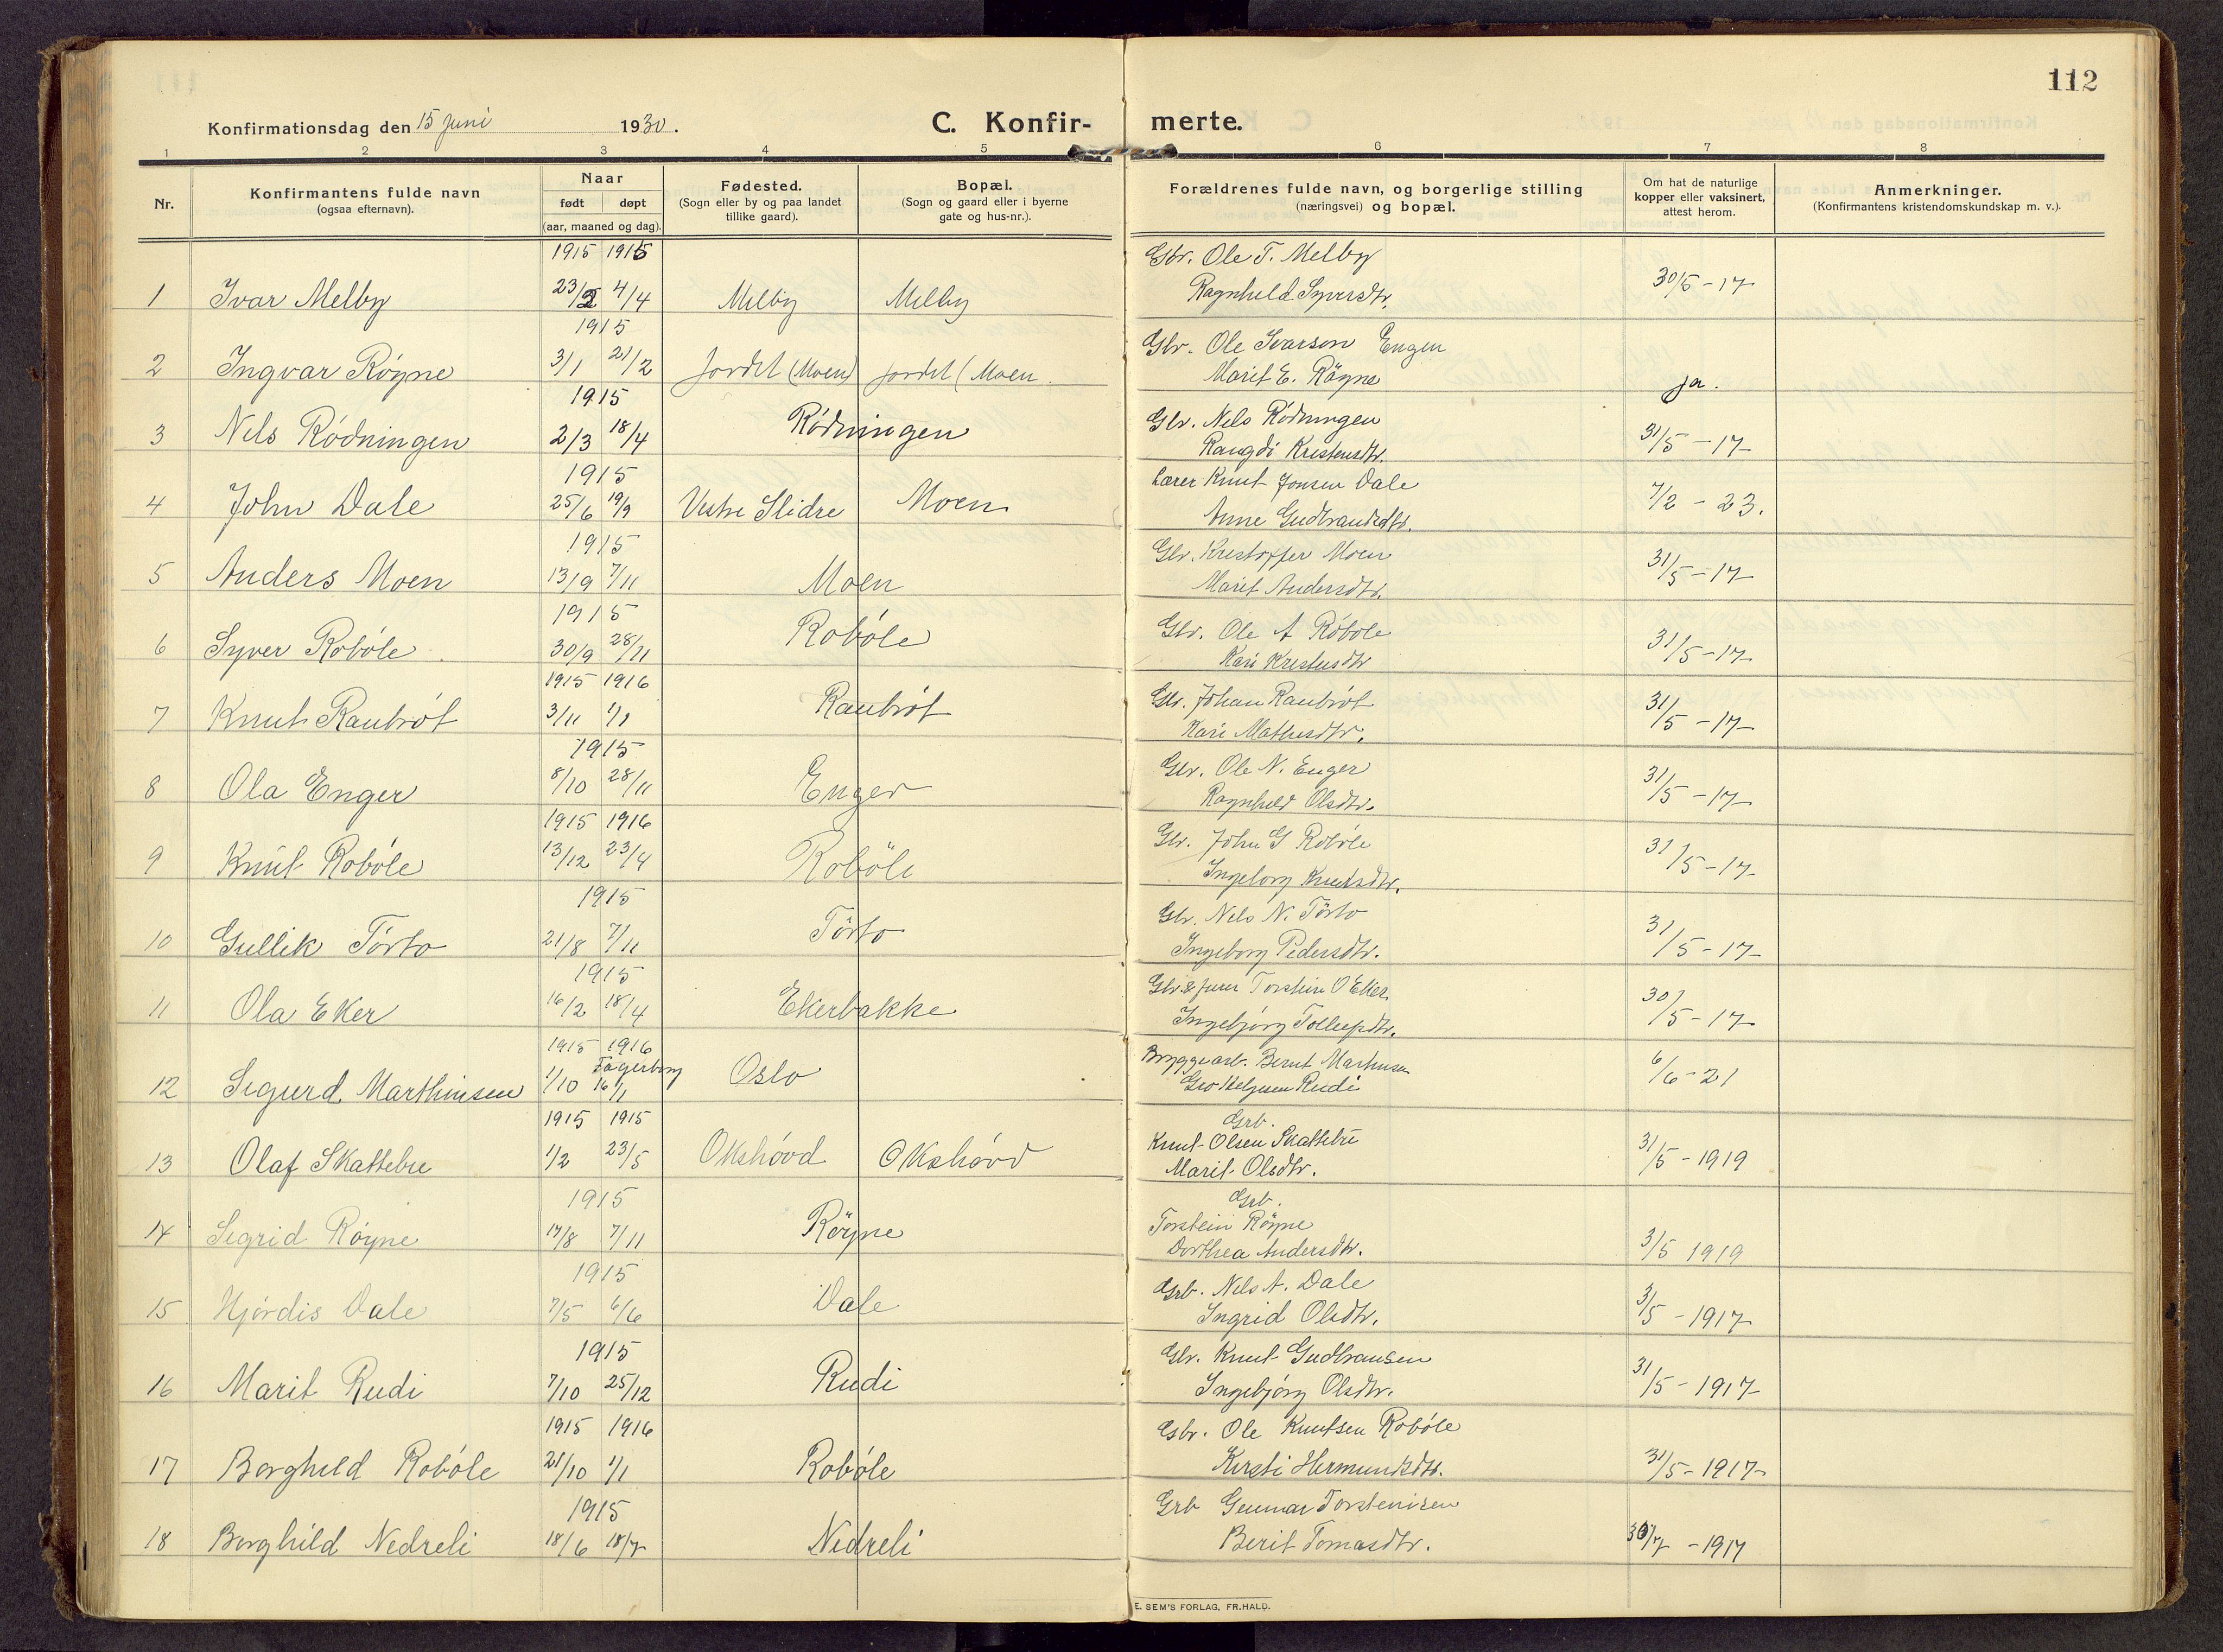 112
Konfirmationsdag den 15 juni 1930.
C. Konfir- merte.
1 2 3 4 5 6 7 8
Nr.
Konfirmantens fulde navn
(ogsaa efternavn).
Naar
født døpt
(aar, maaned og dag).
Fødested.
(Sogn eller by og paa landet
tillike gaard).
Bopæl.
(Sogn og gaard eller i byerne
gate og hus-nr.).
Forældrenes fulde navn, og borgerlige stilling
(næringsvei) og bopæl.
Om hat de naturlige
kopper eller vaksinert,
attest herom.
Anmerkninger.
(Konfirmantens kristendomskundskap m. v.).
1915 1915 Gbr. Ole T. Melby
1 Ivar Melby 23/2 4/4 Melby Melby Ragnhild Syversdtr. 30/5 - 17
1915 Gbr. Ole Ivarson Engen
2 Ingvar Röyne 3/1 21/2 Jordet (Moen) Jordet (Moen Marit E. Röyne ja.
1915 Gbr. Nels Rödningen
3 Nels Rödningen 2/3 18/4 Rödningen Rangdi Kristensdtr. 31/5 - 17
1915 Lærer Knut Jonsen Dale
4 John Dale 25/6 19/9 Vestre Slidre Moen Anne Gudbrandsdtr. 7/2 - 23.
1915 Gbr. Kristoffer Moen
5 Anders Moen 13/9 7/11 Moen Marit Andersdtr. 31/5 - 17
1915 Gbr. Ole A Roböle
6 Syver Roböle 30/9 28/11 Roböle Kari Kristensdtr 31/5 - 17
1915 1916 Gbr. Johan Raubröt
7 Knut Raubröt 3/11 1/1 Raubröt Kari Mathisdtr. 31/5 - 17
1915 Gbr. Ole N. Enger
8 Ola Enger 8/10 28/11 Enger Ragnhild Olsdtr. 31/5 - 17
1915 1916 Gbr. John G Roböle
9 Knut Roböle 13/12 23/4 Roböle Ingeborg Knutsdtr. 31/5 - 17
1915 Gbr. Nels N. Törto
10 Gullik Törto 21/8 7/11 Törto Ingeborg Pedersdtr. 31/5 - 17
1915 Gbr & Torstein O Eker
11 Ola Eker 16/2 18/4 Ekerbakke Ingebjörg Tollefsdtr. 30/5 - 17
1915 1916 Bryggearb. Bernt Marthinsen
Fagerborg
12 Sigurd Marthinsen 1/10 16/1 Oslo Gro Helgesen Rudi 6/6 - 21
1915 1915 Grb.
Knut Olsen Skattebu
13 Olaf Skattebu 1/2 23/5 Okshövd Okshövd Marit Olsdtr. 31/5 - 1919
1915 Grb.
Torstein Röyne
14 Sigrid Röyne 17/8 7/11 Röyne Dorthea Andersdtr. 3/5 1919
1915 Grb. Nils A. Dale
15 Hjördis Dale 7/5 6/6 Dale Ingrid Olsdtr. 3/5 - 1917
1915 Gbr. Knut Gudbransen
16 Marit Rudi 7/10 25/12 Rudi Ingebjörg Olsdtr. 31/5 - 1917
1915 1916 Gbr. Ole Knutsen Roböle
17 Borghild Roböle 21/10 1/1 Roböle Kirsti Hermundsdtr. 31/5 - 1917
1915 Grb Gunnar Torsteinsen
18 Borghild Nedreli 18/6 18/7 Nedreli Berit Tomasdtr. 30/7 - 1917
E. SEM'S FORLAG, FR.HALD.